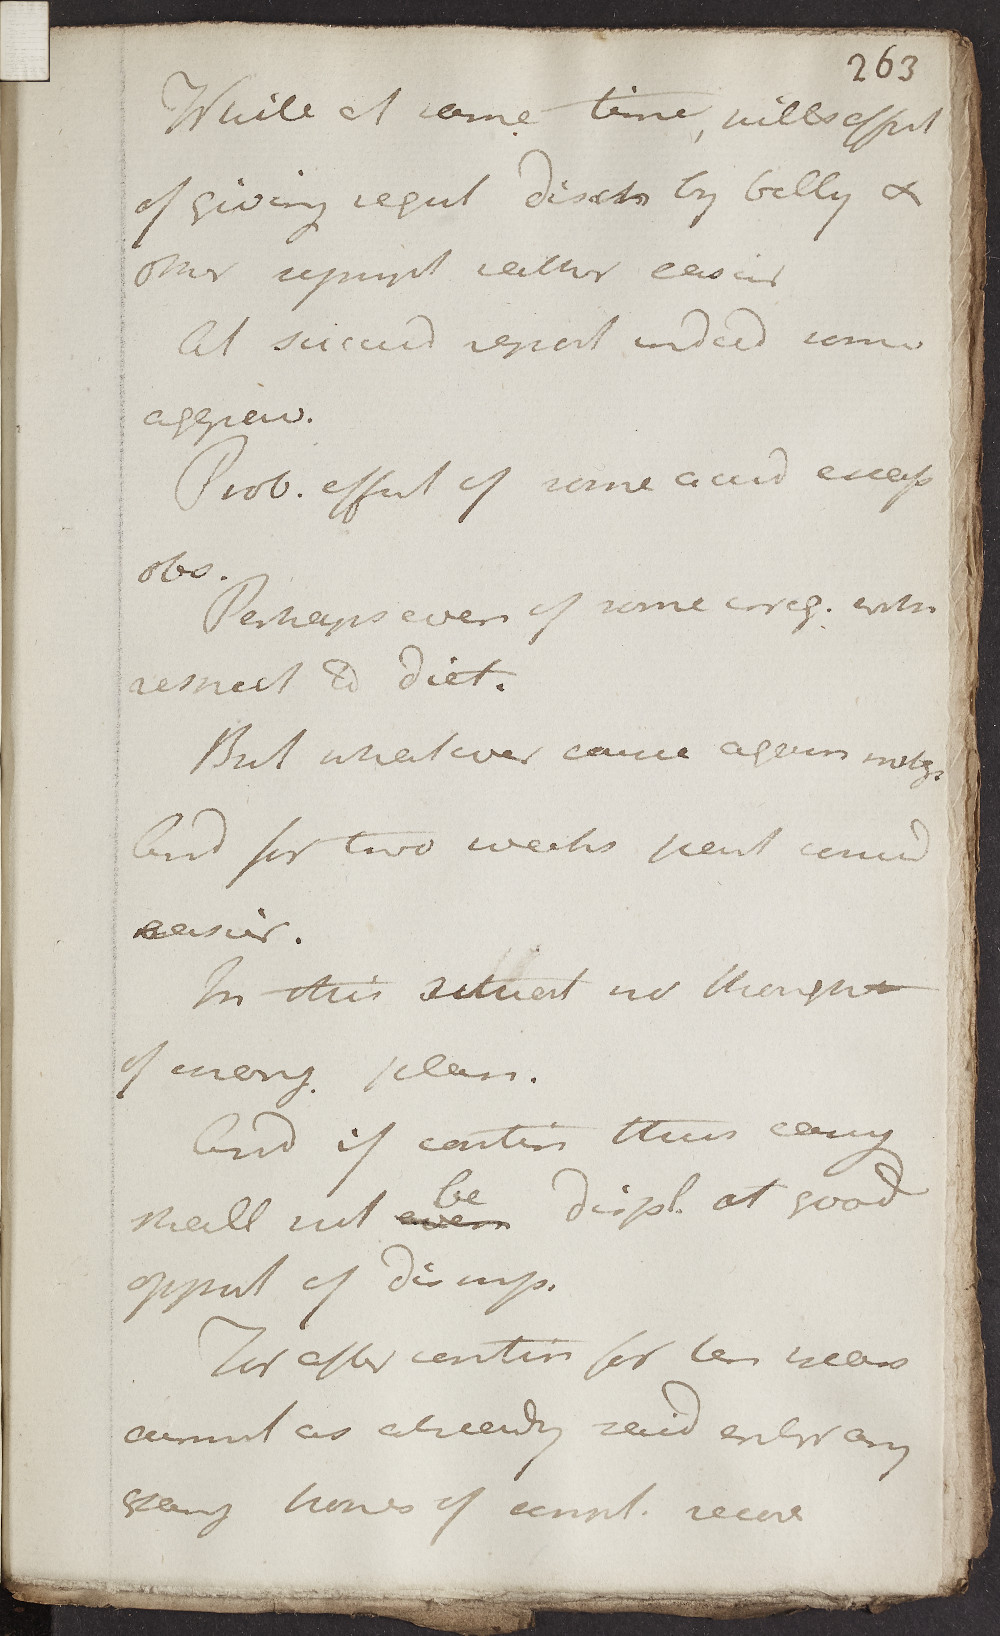 263
While at same time, pills effect
of giving regul disch by belly &
other sympt rather easier
At second report indeed some
aggrav.
Prob. effect of some accid escap
obs.
Perhaps even of some irreg. with
respect to diet.
But whatever cause again mitig.
And for two weeks past consid
easier.
In this situat no thought
of chang. plan.
And if contin thus easy
shall not even be displ. at good
opport of dismiss.
For after contin for ten years
cannot as already said entert any
hopes of compl. recov